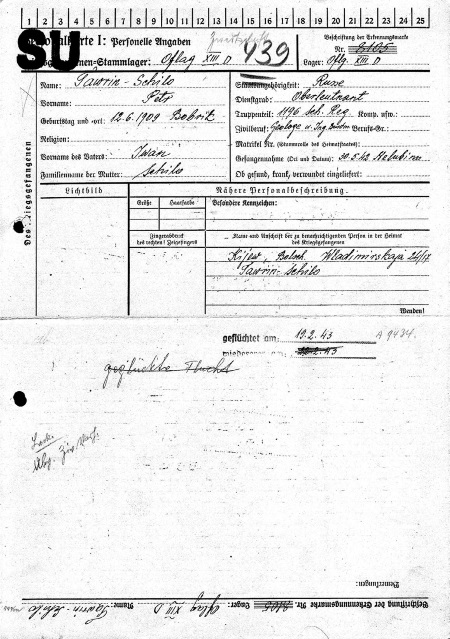 1 2 3 4 5 6 7 8 9 10 11 12 13 14 15 16 17 18 19 20 21 22 23 24 25
SU
Personalkarte I: Personelle Angaben
439
Beschriftung der Erkennungsmarke
Nr. 8105
Stammlager: Oflag XIII D
Lager: Oflg. XIII D
Des Kriegsgefangenen
Name: Tawrin-Schilo
Vorname: Petr
Geburtstag und -ort: 12.6.1909 Bobrik
Religion:
Vorname des Vaters: Iwan
Familienname der Mutter: Schilo
Staatsangehörigkeit: Russe
Dienstgrad: Oberleutnant
Truppenteil: 1196 Sch. Reg. Komp. usw.:
Zivilberuf: Geologe u. Ing. Berufs-Gr.:
Matrikel Nr. (Stammrolle des Heimatstaates):
Gefangennahme (Ort und Datum): 30.5.42
Ob gesund, krank, verwundet eingeliefert:
Lichtbild
Nähere Personalbeschreibung
Größe
Haarfarbe
Besondere Kennzeichen:
Fingerabdruck
des rechten! Zeigefingers
Name und Anschrift der zu benachrichtigenden Person in der Heimat
des Kriegsgefangenen
Kijew, Wladimirskaja
Tawrin-Schilo
Wenden!
geflüchtet am: 19.2.43
A 9434.
geglückte Flucht
Bemerkungen:
Beschriftung der Erkennungsmarke Nr. 8105 Lager: Oflag XIII D Name: Tawrin-Schilo